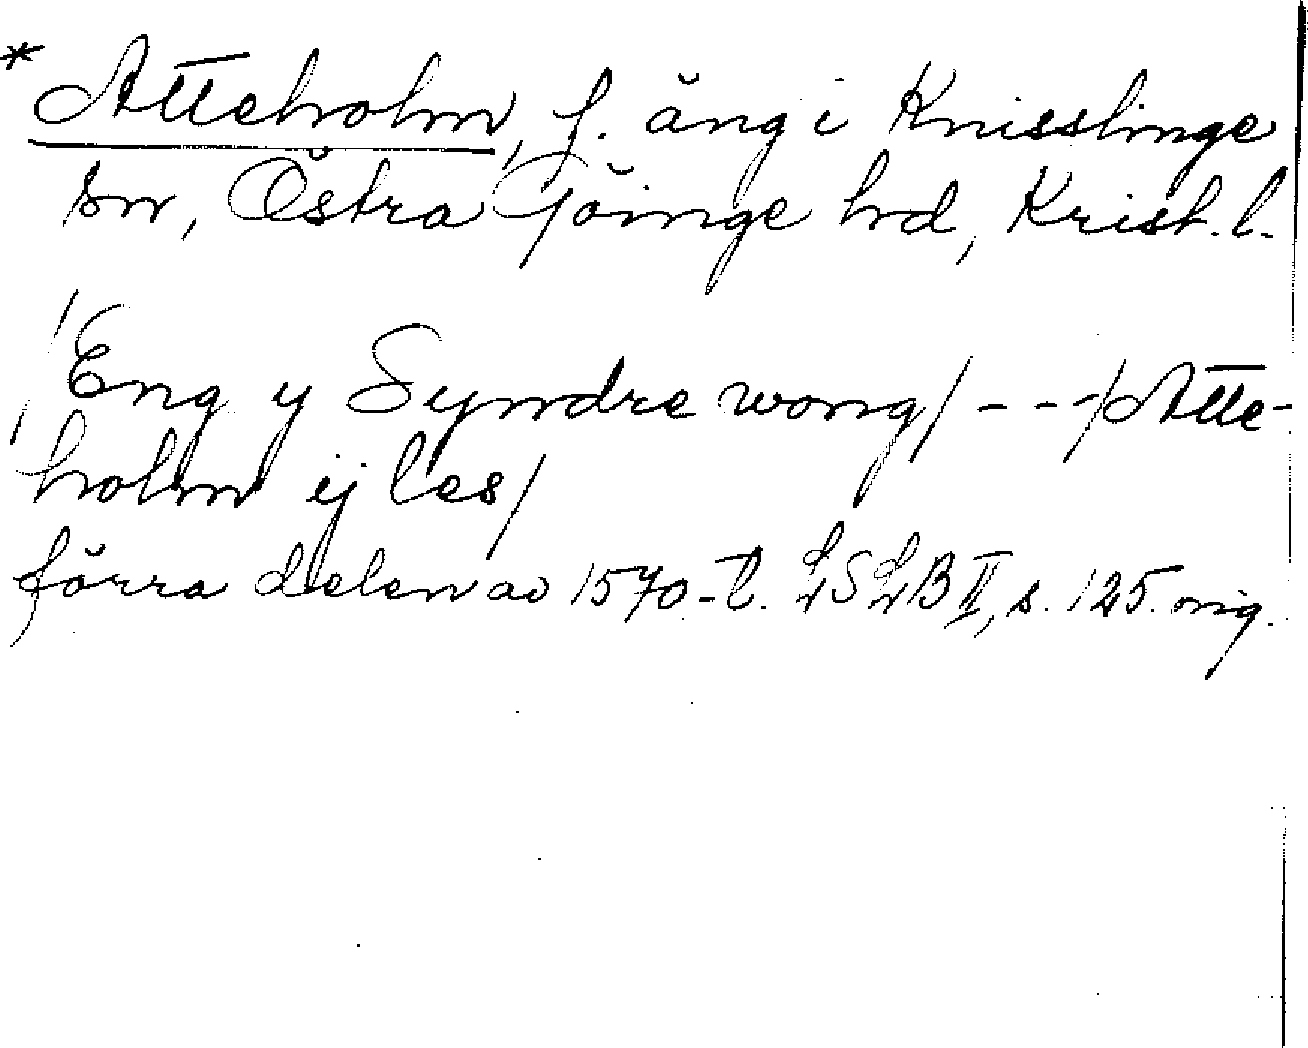 * Atteholm, f. äng i Knisslinge
sn, Östra Göinge hd, Krist. l.
/Eng y Syndre wong/ - - -/Atte-
holm ij les/
förra delen av 1570-t. LSLB II, s. 125. orig.